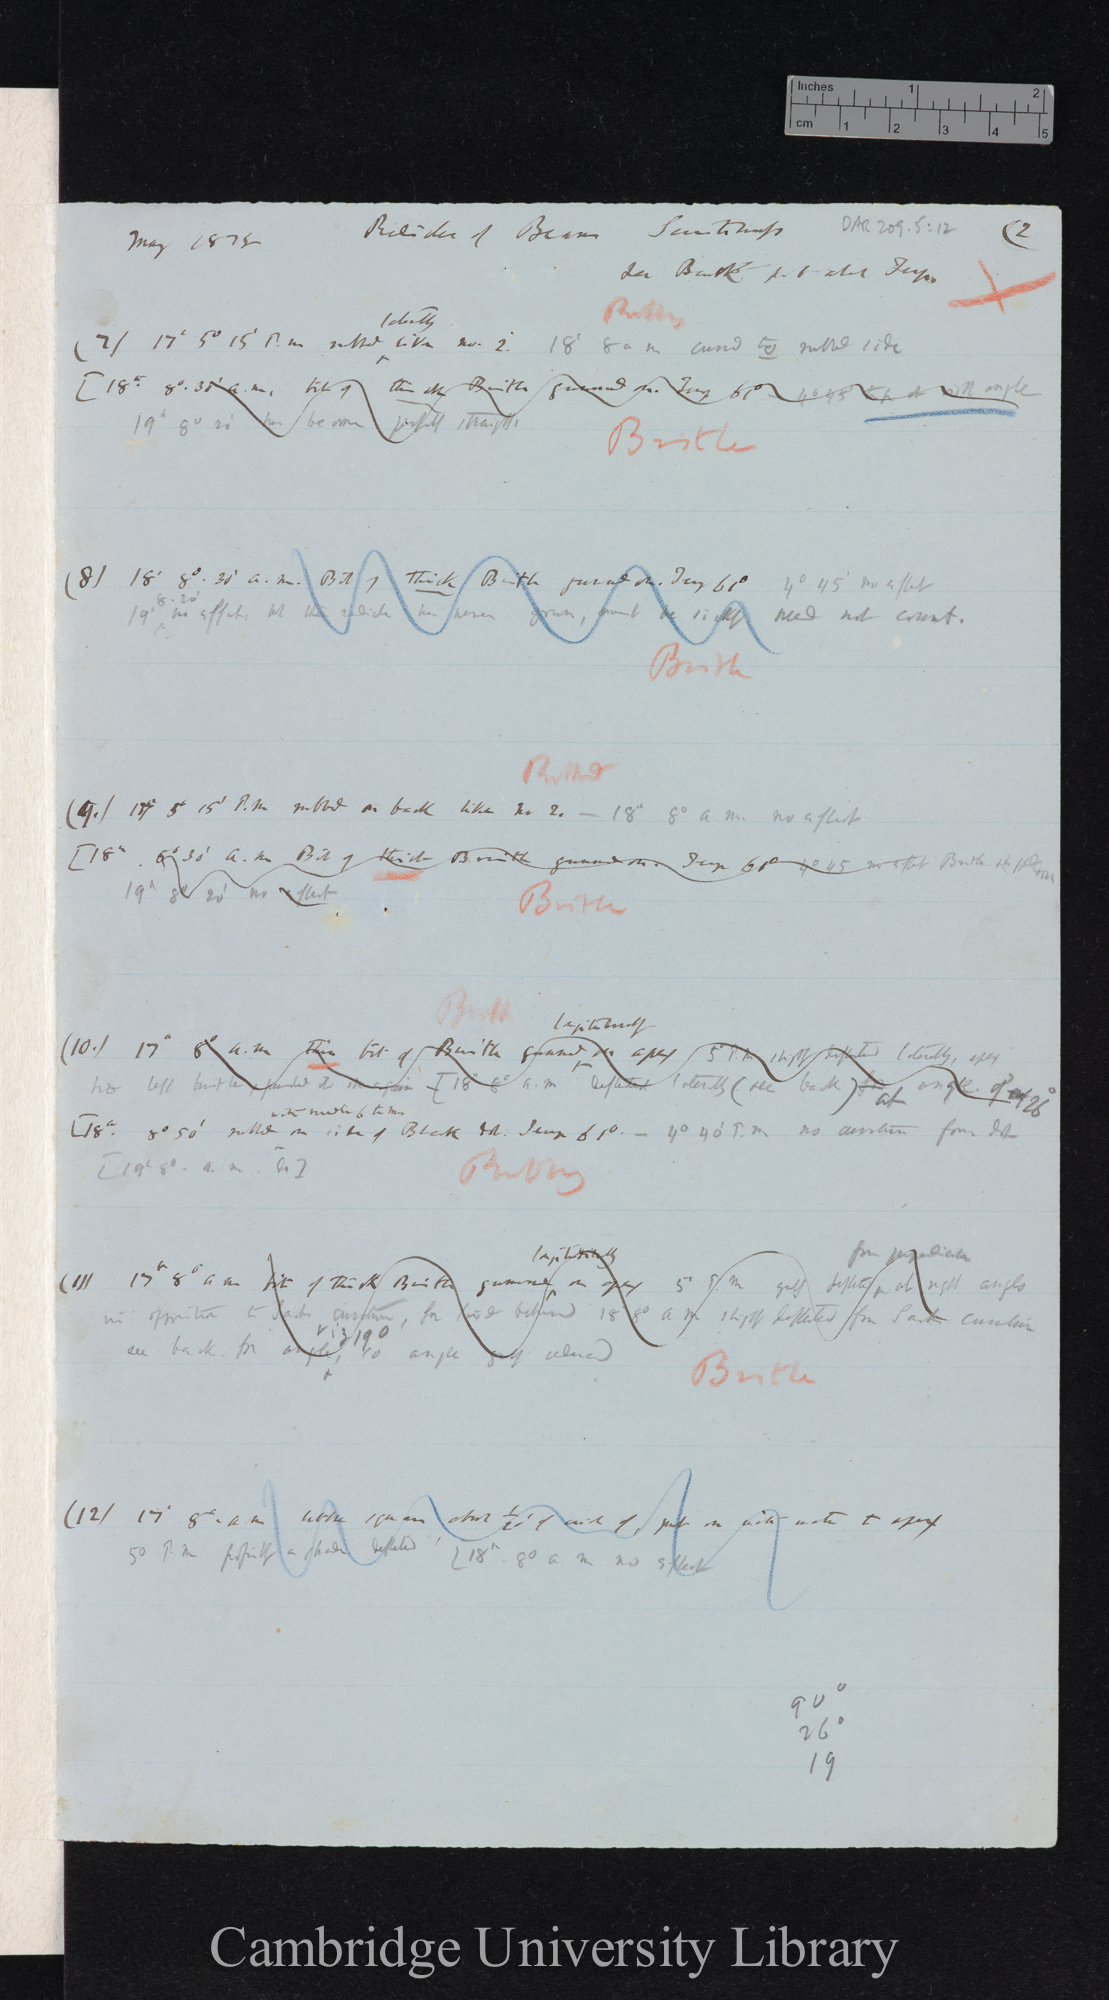 Inches 1 2
cm 1 2 3 4 5
May 1878 Radicles of Beans Sensitiveness DAR 209.5:12 (2
See Back p. 6 about Temp
Rubbing
laterally
(7) 17th 5° 15' P.m rubbed like no. 2. 18th 8 a m curved to rubbed side
[18th 8°. 30' a.m. bit of thick Bristle gummed on. Temp 61° 4° 45' tip at right angle
19th 8° 20' has become perfectly straight
Bristle
(8) 18th 8°. 30' a.m. Bit of thick Bristle gummed on. Temp 61° 4° 45' no effect
8.20'
19th no effect. but the radicle has never grown, must be sickly need not count.
Bristle
Rubbed
(9.) 17th 5° 15' P.m rubbed on back like no 2. — 18th 8° a.m. no effect
[18th. 8° 30' a.m Bit of thick Bristle gummed on. Temp 61° 4° 45 no effect Bristle
19th 8° 20' no effect
Bristle
Bristle
longitudinally
(10.) 17th 8° a.m thin bit of Bristle gummed on apex 5° P.m slightly deflected laterally, apex
has left bristle, [18th 8° a.m deflected laterally (see back) at angle of 26°
with needle 6 times
[18th. 8° 50' rubbed on side of Black dot. Temp 61°. — 4° 40' P.m no curvature from dot
[19th 8°. a. m. do]
Rubbing
longitudinally from perpendicular
(11) 17th 8° a m bit of thick Bristle gummed on apex 5° P.m deflected at right angle
in opposition to Sachs curvature, for 18th 8° a m slightly deflected from Sachs curvature
viz 19°
see back for angle, so angle greatly reduced
Bristle
(12) 17th 8° a m square about 1/20 of of put on with water to apex
5° P.m a shade deflected [18th. 8° a. m no effect
90°
26°
19
Cambridge University Library